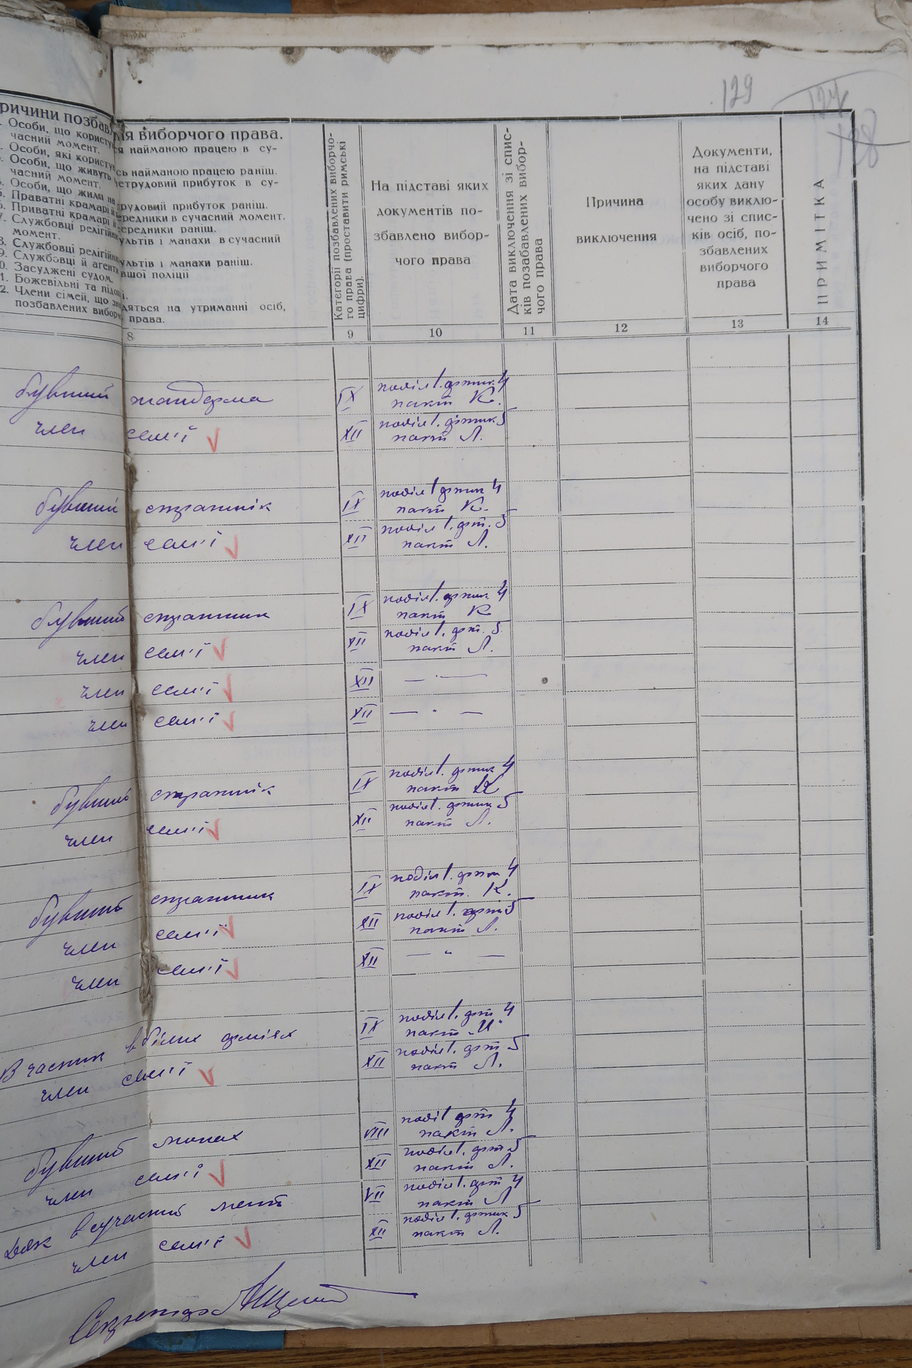 129
128
ричини позбав ня виборчого права.
Особи, що користу ся найманою працею в су-
часний момент.
Особи, які користу сь найманою працею раніш.
Особи, що живуть нетрудовий прибуток в су-
часний момент.
Особи, що жили на трудовий прибуток раніш.
Приватні крамарі й ередники в сучасний момент.
Приватні крамарі й середники раніш.
7. Службовці релігійни культів і манахи в сучасний
момент.
8. Службовці релігійн культів і манахи раніш.
9. Службовці й агенти вшої поліції
0. Засуджені судом.
1. Божевільні та підо
2. Члени сімей, що зна дяться на утриманні осіб,
позбавлених виборч права.
Категорії позбавлених виборчо-
го права (проставити римські
цифри).
На підставі яких
документів по-
збавлено вибор-
чого права
Дата виключення зі спис-
ків позабавлених вибор-
чого права
Причина
виключення
Документи,
на підставі
яких дану
особу виклю-
чено зі спис-
ків осіб, по-
збавлених
виборчого
права
ПРИМІТКА
8 9 10 11 12 13 14
бувший жандарма IX поділ 1. артик 4
пакт К.
член сем'ї XII поділ 1. артик 5
пакт Л.
бувший стражнік IX поділ 1 артик 4
пакт К.
член сем'ї XII поділ 1. арт. 5
пакт Л.
бувший стражник IX поділ 1. артик 4
пакт К
член сем'ї XII поділ 1. арт. 5
пакт Л.
член сем'ї XII — " —
член сем'ї XII — " —
бувший стражнік IX поділ 1. артик 4
пакт К
член сем'ї XII поділ 1. артик 5
пакт Л.
бувший стражник IX поділ 1. артик 4
пакт К.
член сем'ї XII поділ 1. арт 5
пакт Л.
член сем'ї XII — " —
Вчастник в білих арміях IX поділ 1. арт 4
пакт "И"
член сем'ї XII поділ 1. арт 5
пакт Л.
бувший монах VIII поділ арт 4
пакт Л.
член сем'ї XII поділ 1. арт 5
пакт Л.
Дяк в сучасний мент VII поділ 1. арт 4
пакт Л
член сем'ї XII поділ 1. артик 5
пакт Л.
Секретар